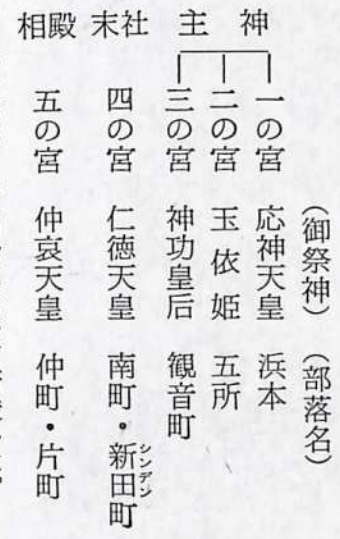 (御祭神)(部落名)
主神 一の宮 応神天皇 浜本
二の宮 玉依姫 五所
三の宮 神功皇后 観音町
末社 四の宮 仁徳天皇 南町・新田町 シンデン
相殿 五の宮 仲哀天皇 仲町・片町